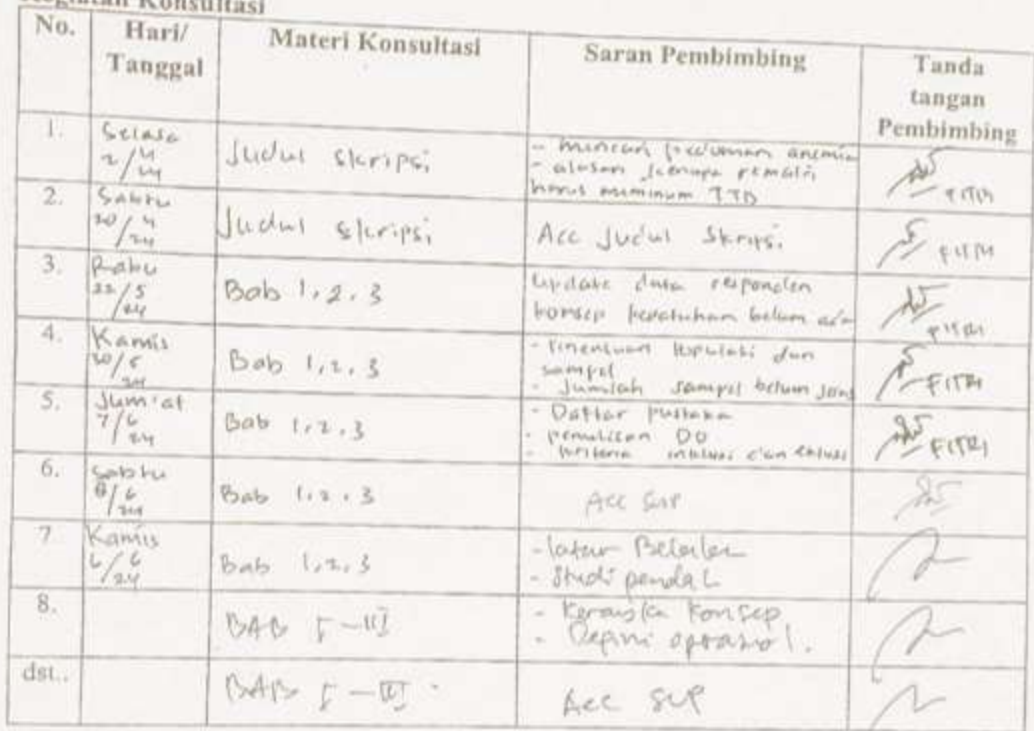 Kegiatan Konsultasi
No. Hari/ Tanggal Materi Konsultasi Saran Pembimbing Tanda tangan Pembimbing
1. Selasa 2/4 24 Judul skripsi - mencari pedoman anemia
- alasan kenapa remaja harus meminum TTD FITRI
2. Sabtu 20/4 24 Judul skripsi Acc Judul Skripsi FITRI
3. Rabu 22/5 24 Bab 1, 2, 3 Update data responden
konsep kepatuhan belum ada FITRI
4. Kamis 30/5 24 Bab 1, 2, 3 - Penentuan populasi dan sampel
- Jumlah sampel belum FITRI
5. Jum'at 7/6 24 Bab 1, 2, 3 - Daftar pustaka
- penulisan DO
- kriteria inklusi dan FITRI
6. Sabtu 8/6 24 Bab 1, 2, 3 Acc SUP
7 Kamis 6/6 24 Bab 1, 2, 3 - latar
- Studi
8. BAB I - III - Konsep
-
dst.. BAB I - III Acc SUP